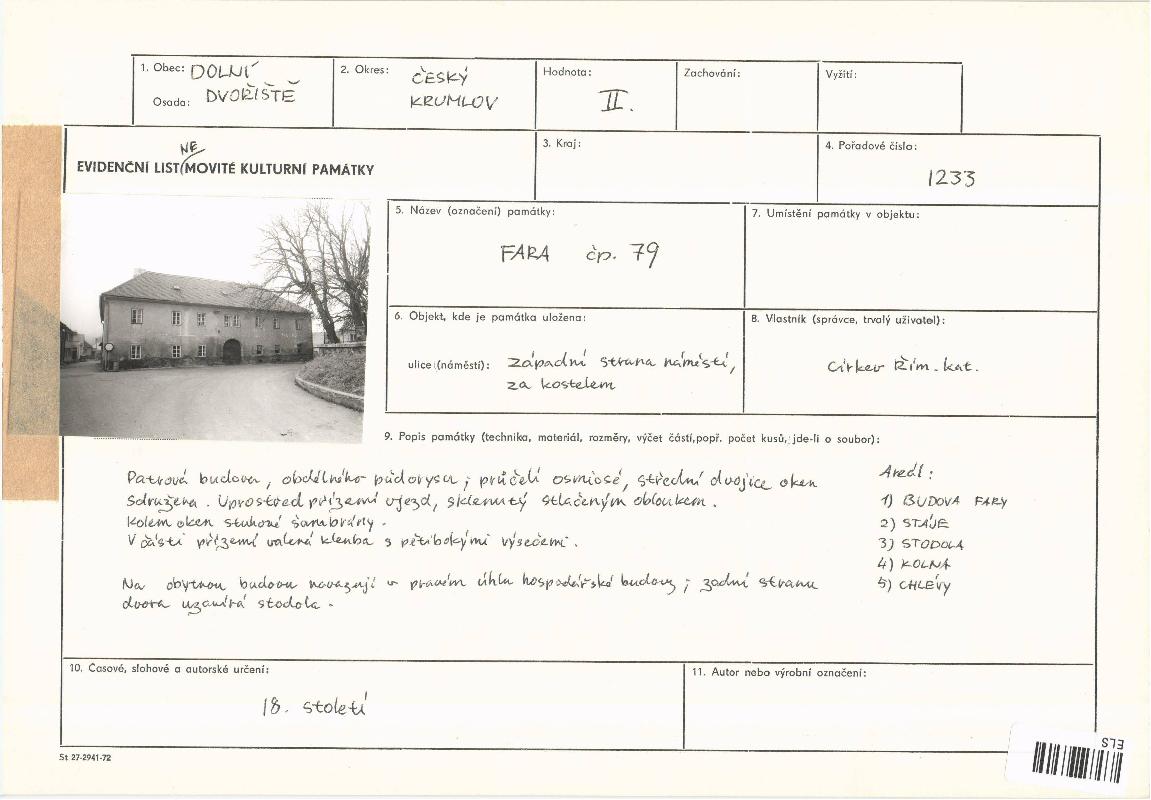 1. Obec: DOLNÍ
Osada: DVOŘIŠTĚ
2. Okres: ČESKÝ
KRUMLOV
Hodnota:
II.
Zachování:
Vyžití:
NE
EVIDENČNÍ LIST MOVITÉ KULTURNÍ PAMÁTKY
3. Kraj:
4. Pořadové číslo:
1233
5. Název (označení) památky:
FARA čp. 79
7. Umístění památky v objektu:
6. Objekt, kde je památka uložena:
ulice (náměstí): západní strana náměstí,
za kostelem
8. Vlastník (správce, trvalý uživatel):
Církev řím. kat.
9. Popis památky (technika, materiál, rozměry, výčet částí, popř. počet kusů, jde-li o soubor):
Patrová budova, obdélného půdorysu; průčelí osmiosé, střední dvojice oken
sdružena. Uprostřed přízemí vjezd, sklenutý stlačeným obloukem.
Kolem oken stuhové šambrány.
V části přízemí valená klenba s pětibokými výsečemi.
Na obytnou budovu navazují v pravém úhlu hospodářské budovy; zadní stranu
dvora uzavírá stodola.
Areál:
1) BUDOVA FARY
2) STÁJE
3) STODOLA
4) KOLNA
5) CHLÉVY
10. Časové, slohové a autorské určení:
18. století
11. Autor nebo výrobní označení:
St 27-2941-72
ELS